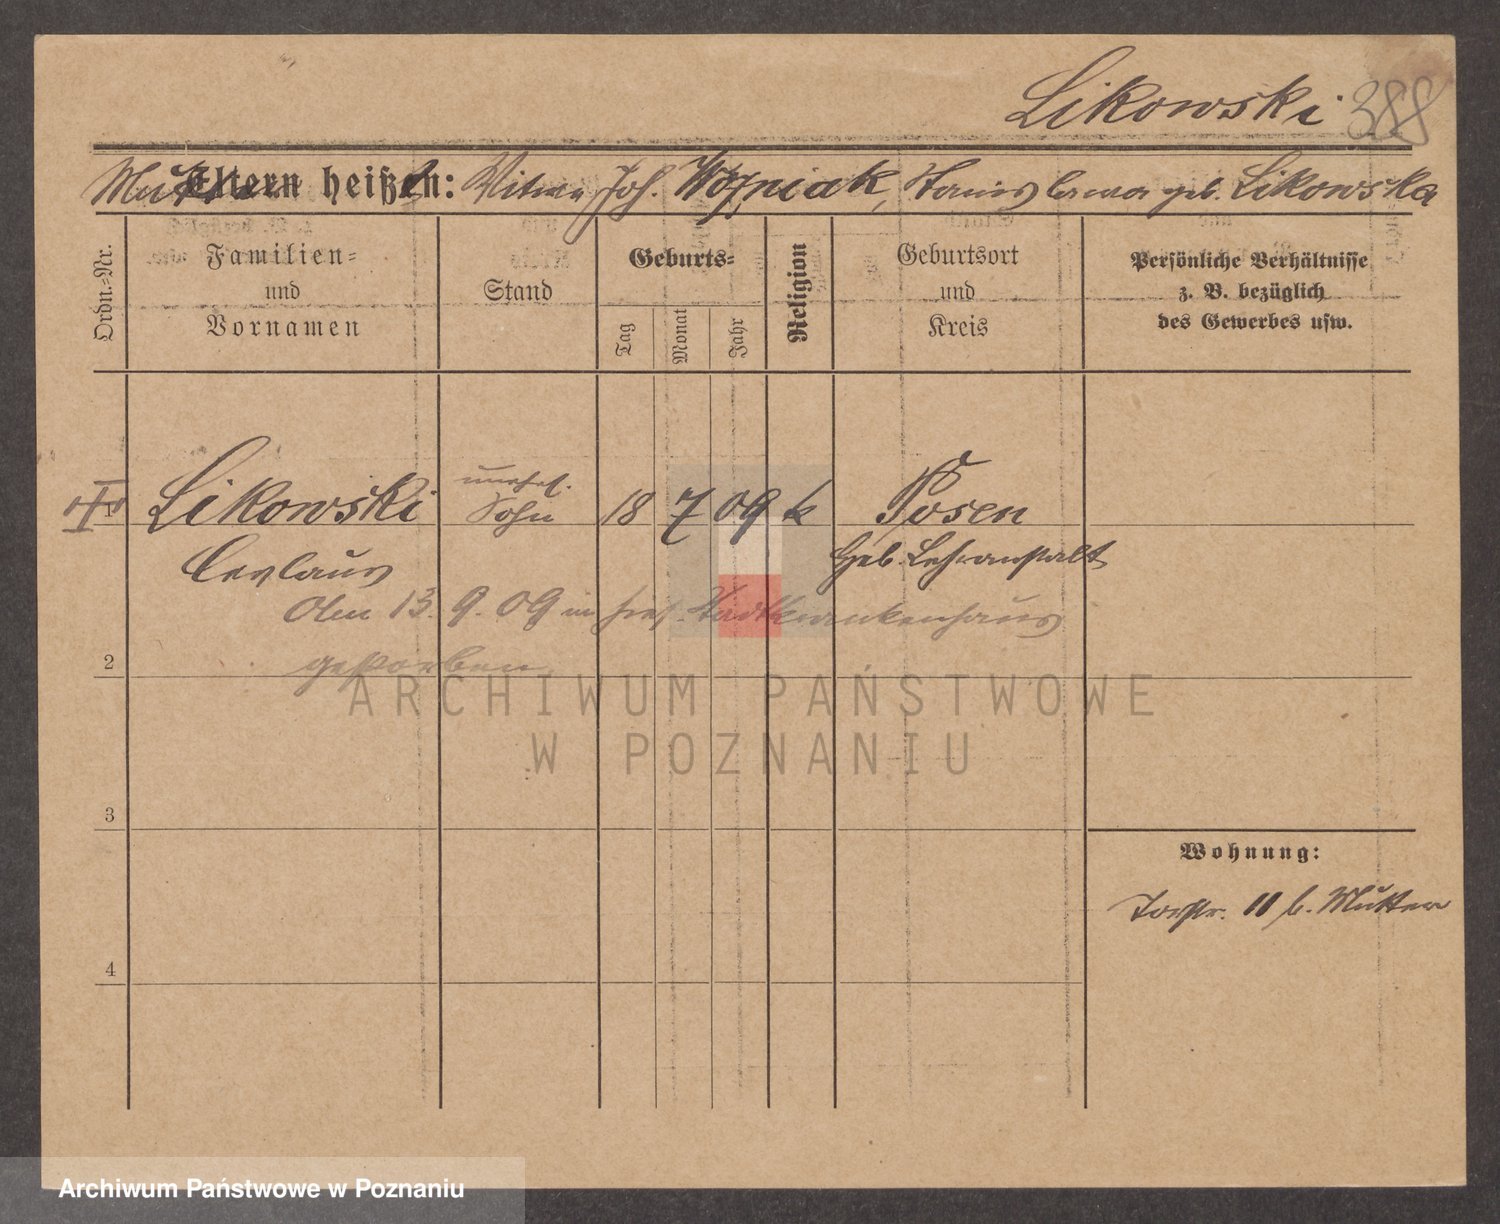 Likowski 388
Mutter Eltern heißen: Witwe Joh. Wozniak, Stanislawa geb. Likowska
Ordn.-Nr.
Familien-
und
Vornamen
Stand
Geburts-
Tag
Monat
Jahr
Religion
Geburtsort
und
Kreis
Persönliche Verhältnisse
z. B. bezüglich
des Gewerbes usw.
1 Likowski unehel. Sohn 18 7 09 k Posen
Ceslaus
Heb. Lehranstalt
Am 13. 9. 09 im hies. Stadtkrankenhaus
gestorben
2
3
4
Wohnung:
Torstr. 11 b. Mutter
ARCHIWUM PAŃSTWOWE
W POZNANIU
Archiwum Państwowe w Poznaniu